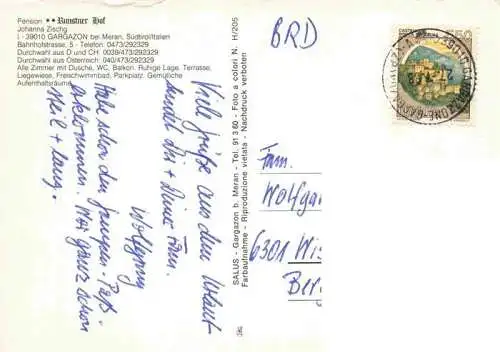 Pension ** Runstner Hof
Johanna Zischg
I - 39010 GARGAZON bei Meran, Südtirol/Italien
Bahnhofstrasse, 5 - Telefon: 0473/292329
Durchwahl aus D und CH: 0039/473/292329
Durchwahl aus Österreich: 040/473/292329
Alle Zimmer mit Dusche, WC, Balkon. Ruhige Lage. Terrasse,
Liegewiese, Freischwimmbad, Parkplatz. Gemütliche
Aufenthaltsräume.
Viele Grüße aus dem Urlaub
sendet Dir + Deiner Fam.
Wolfgang
Habe schon den Jaufen-Paß
erklommen. War ganz schön
steil + lang.
SALUS - Gargazon b. Meran - Tel. 91 3 60 - Foto a colori N. H/205
Farbaufnahme - Riproduzione vietata - Nachdruck verboten
BRD
Fam.
Wolfga
6301 Wi
Ber
750